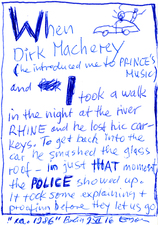 When
Dirk Macherey
(he introduced me to PRINCE'S
MUSIC)
and I took a walk
in the night at the river
RHINE and he lost his car-
keys. To get back into the
car he smashed the glass
roof – in just THAT moment
the POLICE showed up.
It took some explaining +
proofing before they let us go
1986" Berlin